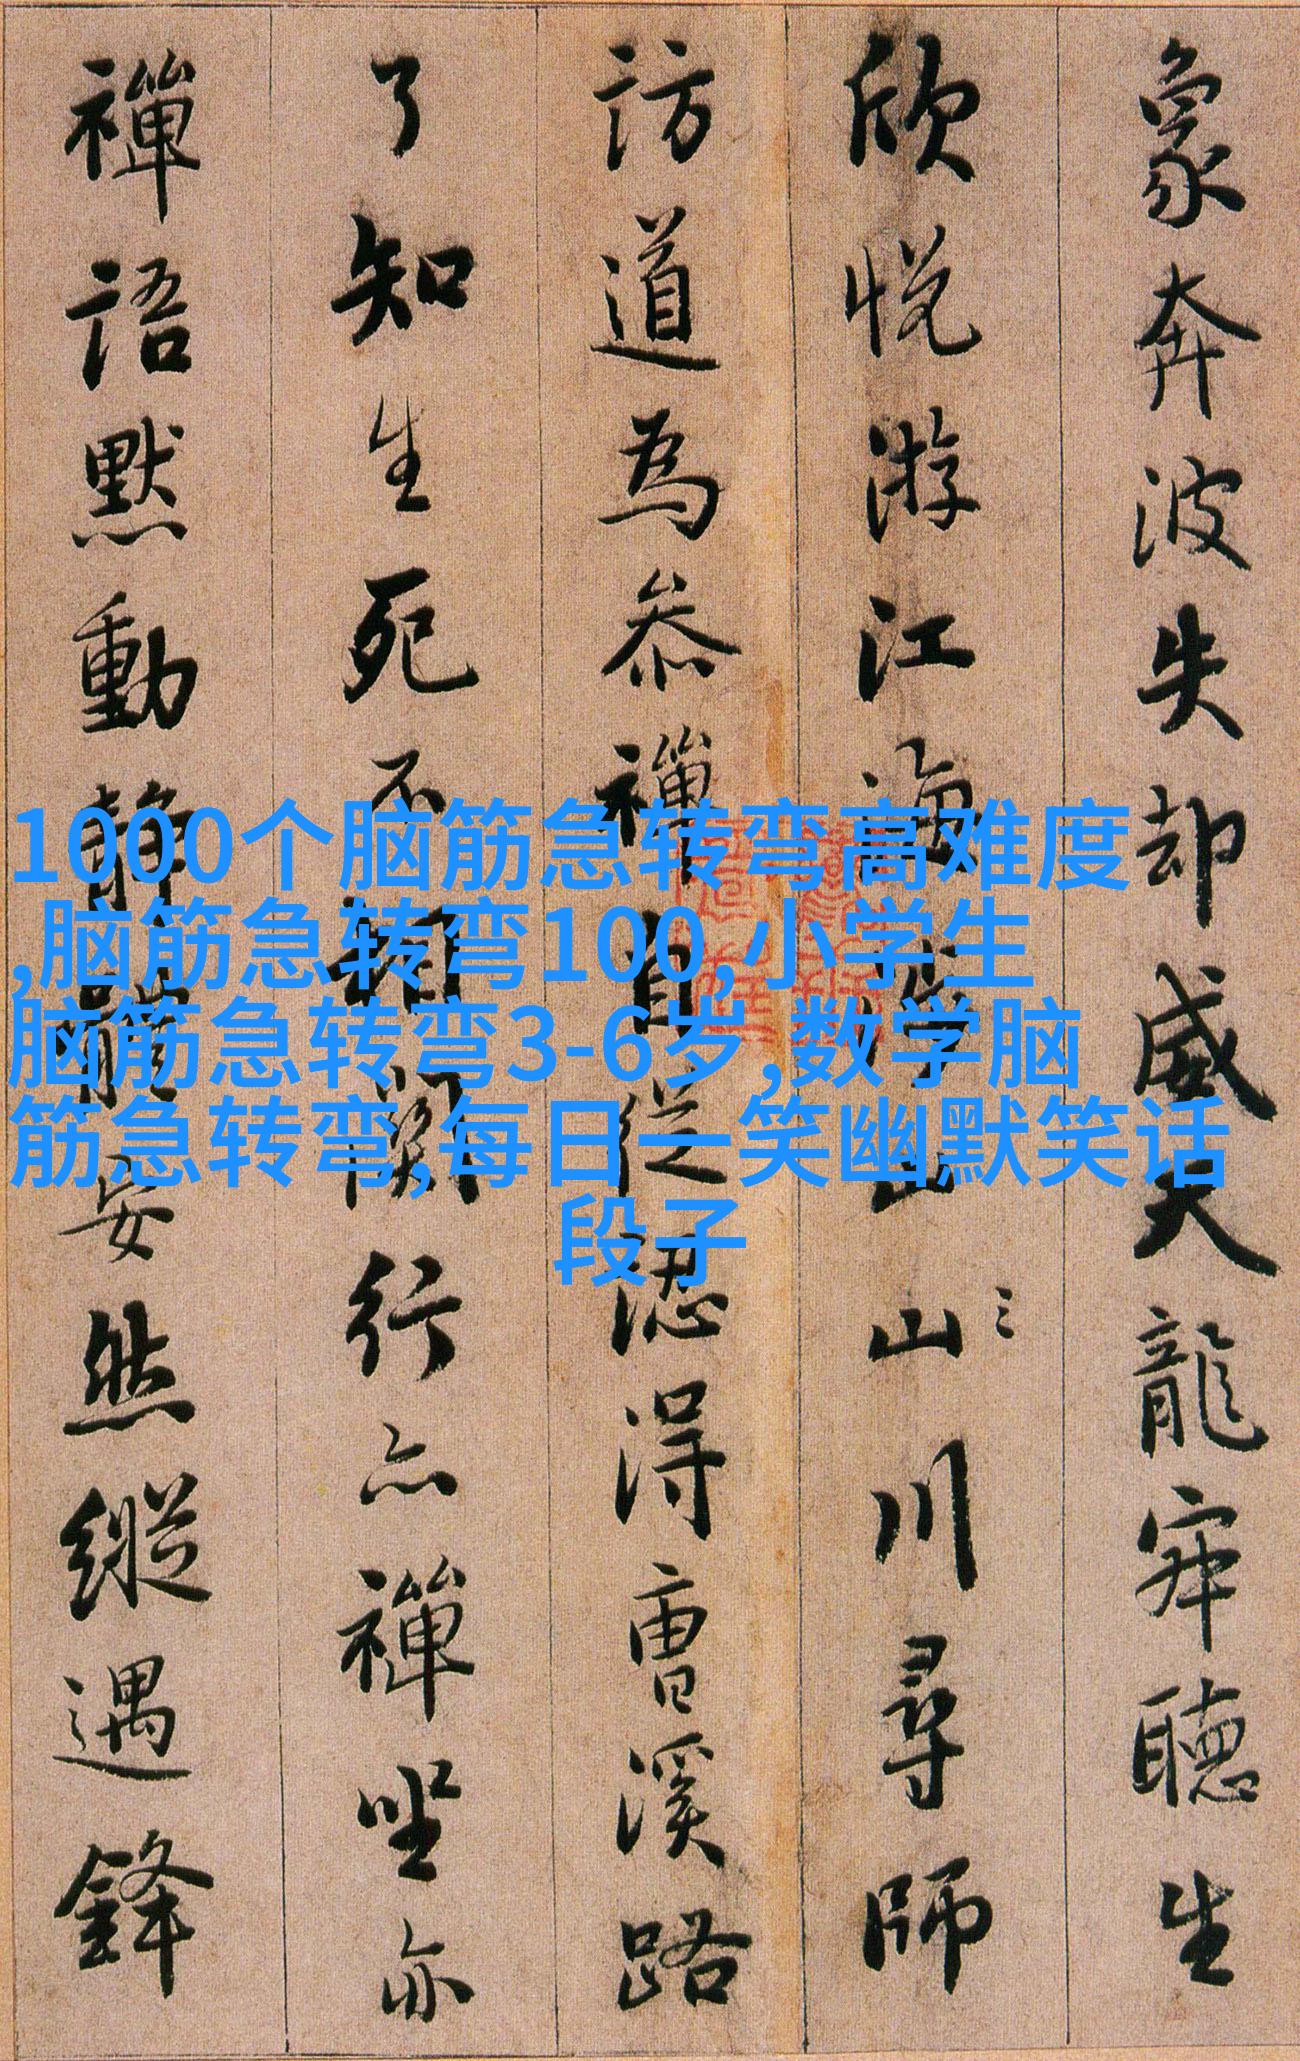 象奔波失却威天龍寂聽生
欣悅游江海涉山山川尋師
訪道為叅禪自從認得曹溪路
了知生死不相關行亦禪坐亦
禪語默動靜體安然縱遇鋒
1000个脑筋急转弯高难度
,脑筋急转弯100,小学生
脑筋急转弯3-6岁,数学脑
筋急转弯,每日一笑幽默笑话
段子